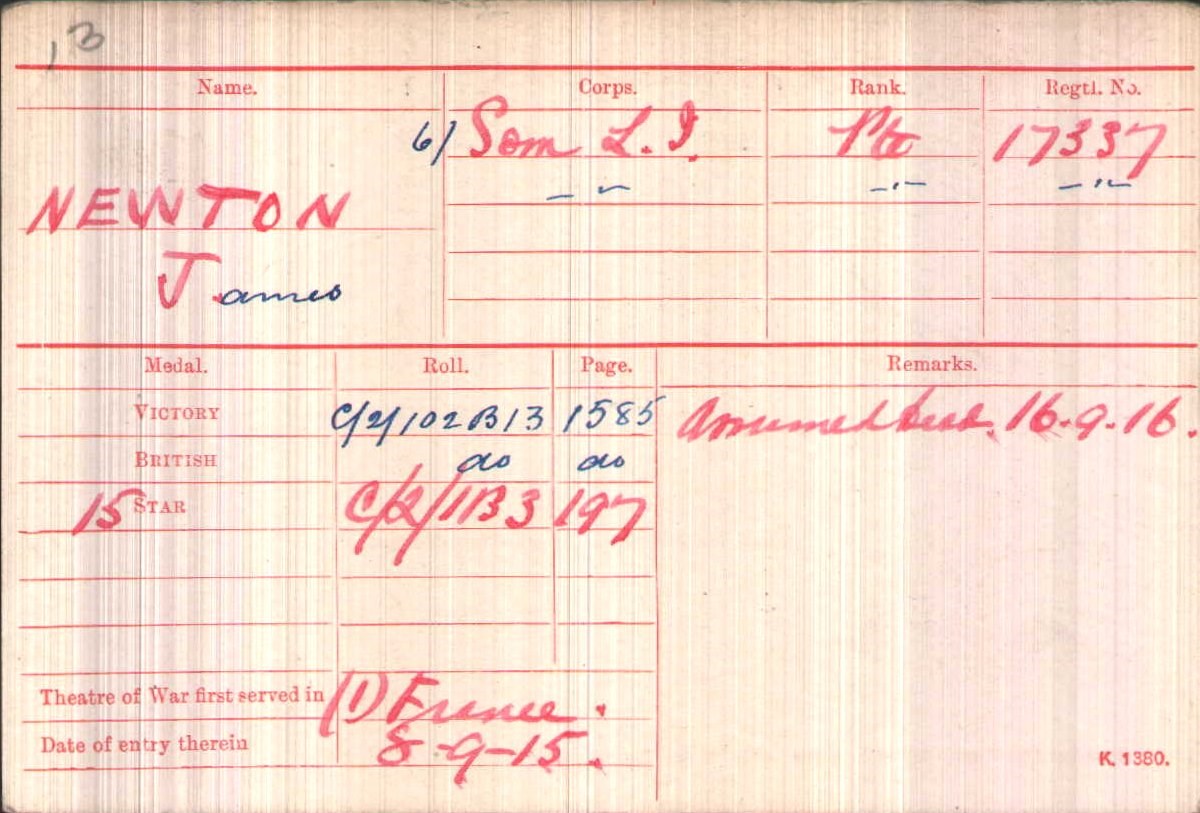 13
Name. Corps. Rank. Regtl. No.
6/ Som L.I. Pte 17337
— " — — " — — " —
NEWTON
James
Medal. Roll. Page. Remarks.
VICTORY C/2/102B13 1585 Assumed dead. 16.9.16.
BRITISH do do
15 STAR C/2/1B3 197
Theatre of War first served in (1) France.
Date of entry therein 8-9-15.
K. 1380.